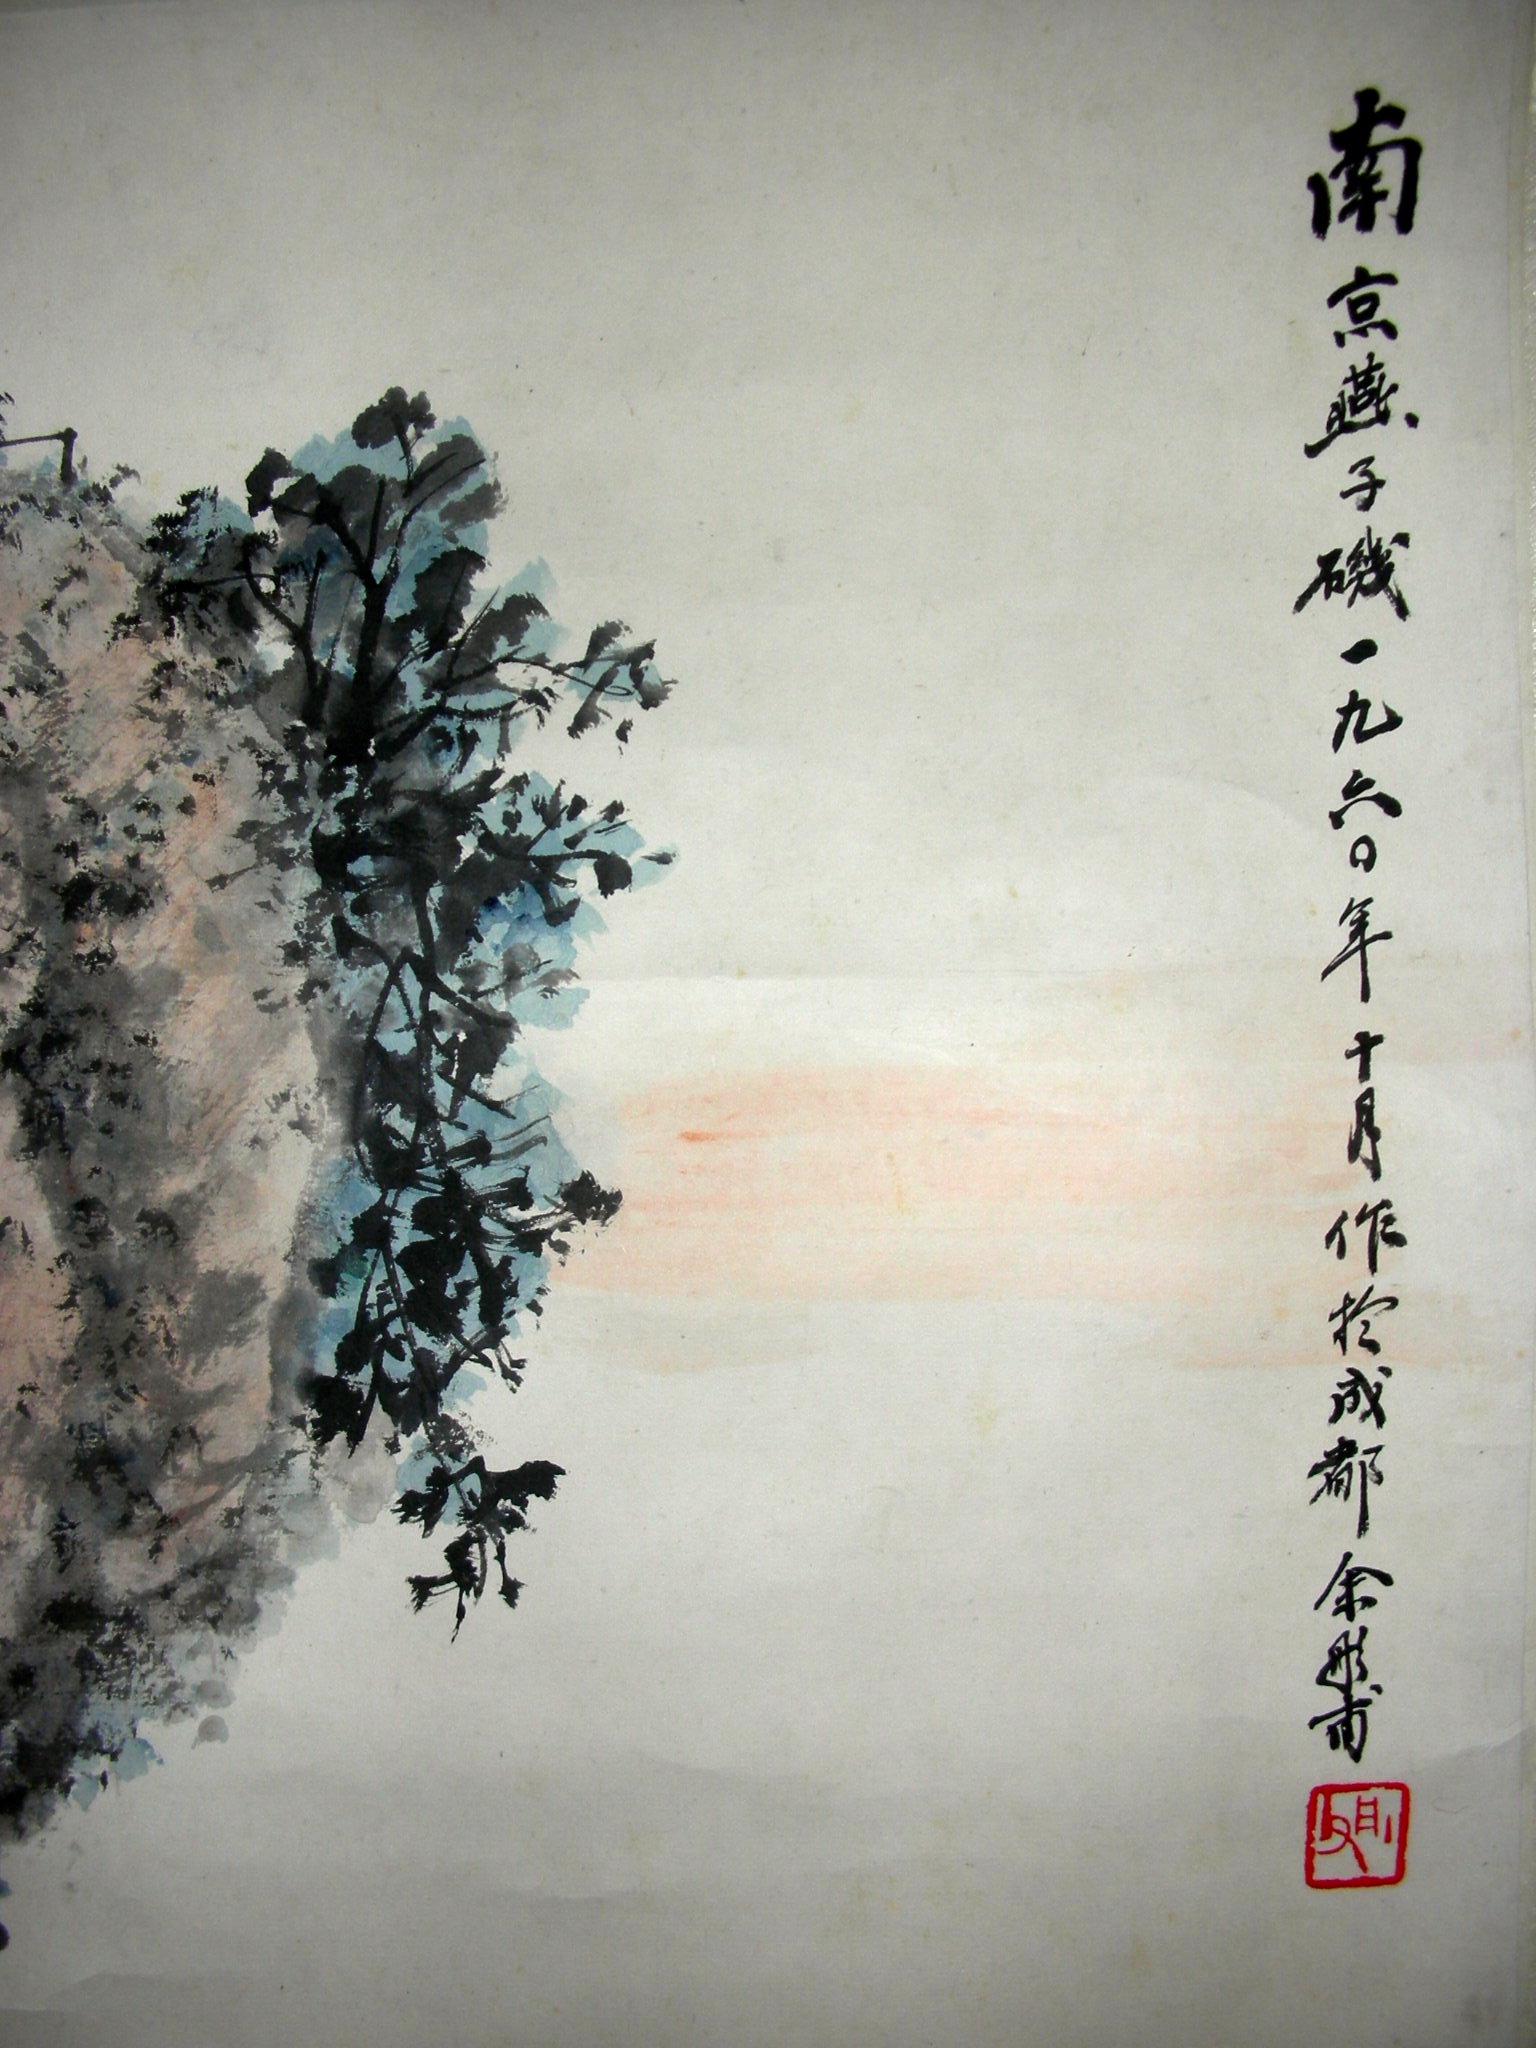 南京燕子磯一九六〇年十月作於成都余彤甫